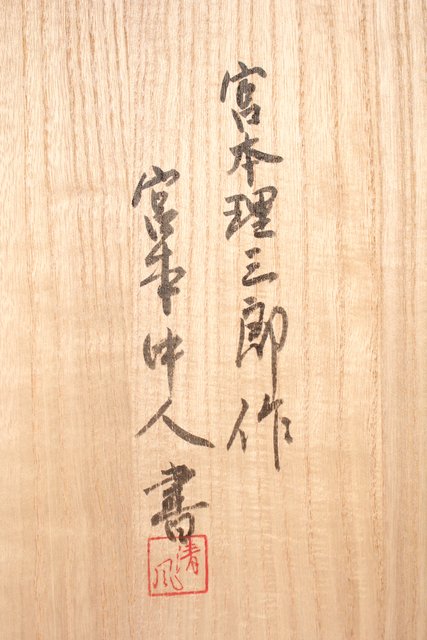 宮本理三郎作
宮本中人書
清風